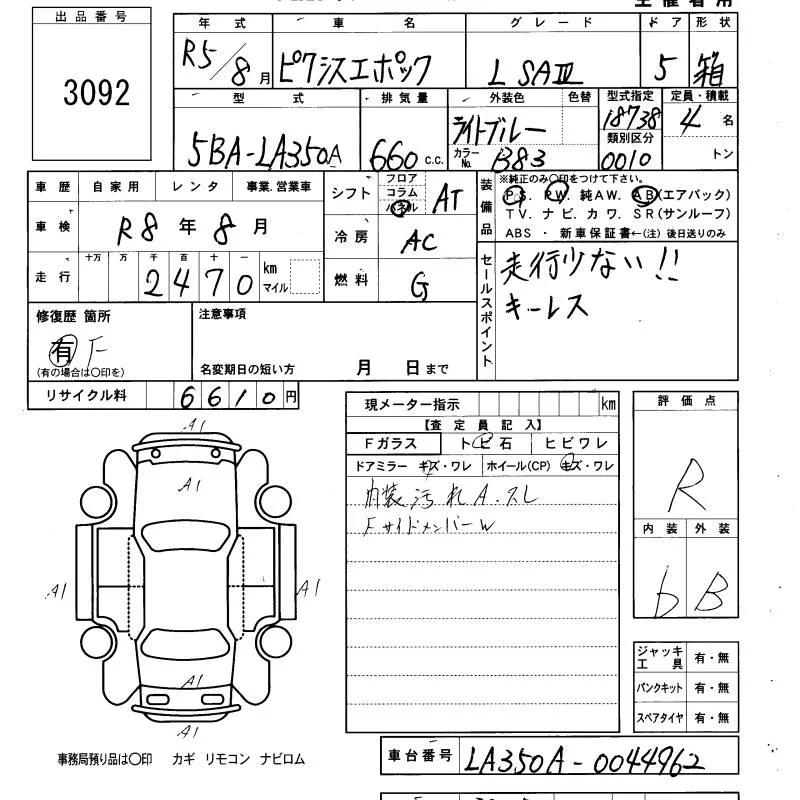 出品番号
3092
年式 車名 グレード ドア 形状
R5/8月 ピクシスエポック L SAⅢ 5 箱
型式 排気量 外装色 色替 型式指定 定員・積載
5BA-LA350A 660 c.c. ライトブルー カラーNo. B83 18738 4名
類別区分 0010 トン
車歴 自家用 レンタ 事業.営業車
車検 R8年8月
走行 十万 万 千 百 十 一 2470 km マイル
シフト フロア コラム パネル AT
冷房 AC
燃料 G
装備品 ※純正のみ〇印をつけて下さい。
PS. PW. 純AW. AB(エアバック)
TV. ナビ. カワ. SR(サンルーフ)
ABS ・ 新車保証書←(注) 後日送りのみ
セールスポイント
走行少ない!!
キーレス
修復歴 箇所
有 F
(有の場合は〇印を)
注意事項
名変期日の短い方 月 日まで
リサイクル料 6610円
現メーター指示 km
【査定員記入】
Fガラス トビ石 ヒビワレ
ドアミラー キズ・ワレ ホイール(CP) キズ・ワレ
内装汚れA.スレ
FサイドメンバーW
評価点
R
内装 外装
b B
A1
A1
A1
A1
A1
A1
ジャッキ工具 有・無
パンクキット 有・無
スペアタイヤ 有・無
事務局預り品は〇印 カギ リモコン ナビロム
車台番号 LA350A-0044962